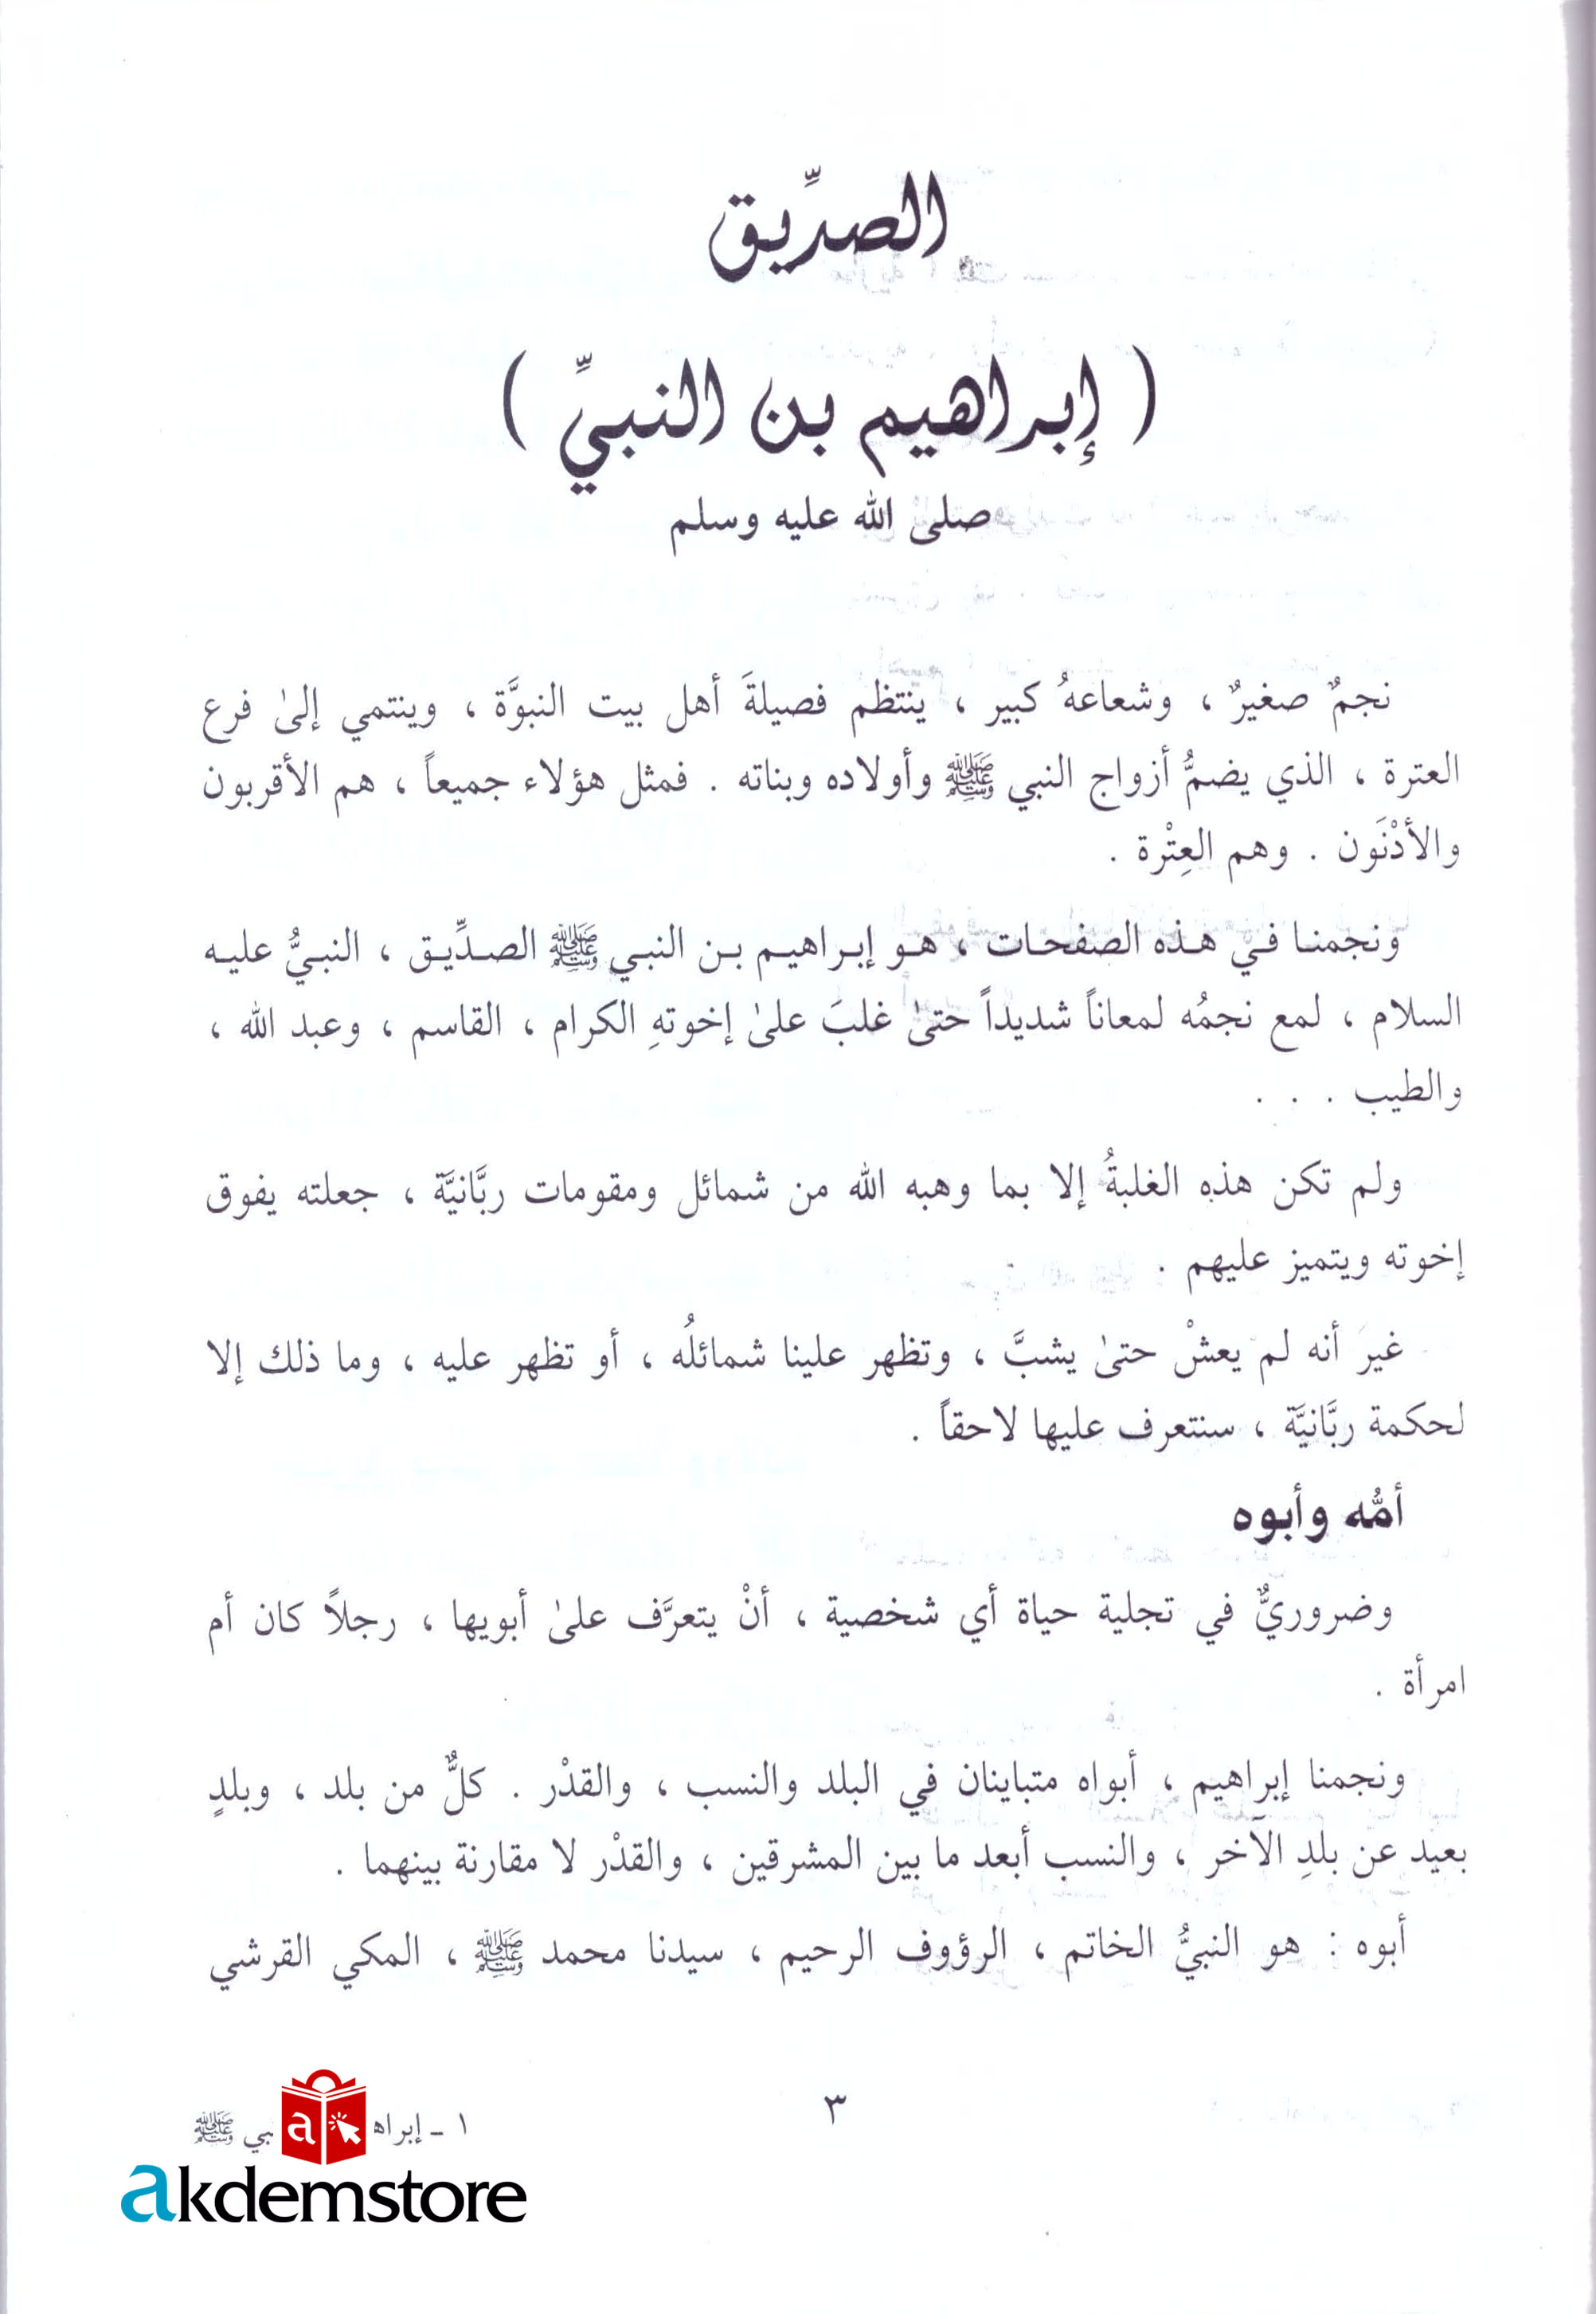 الصدِّيق
( إبراهيم بن النبيِّ )
صلى الله عليه وسلم
نجمٌ صغيرٌ ، وشعاعهُ كبير ، ينتظم فصيلةَ أهل بيت النبوَّة ، وينتمي إلىٰ فرع
العترة ، الذي يضمُّ أزواج النبي ﷺ وأولاده وبناته . فمثل هؤلاء جميعاً ، هم الأقربون
والأدْنَون . وهم العِتْرة .
ونجمنا في هذه الصفحات ، هو إبراهيم بن النبي ﷺ الصدِّيق ، النبيُّ عليه
السلام ، لمع نجمُه لمعاناً شديداً حتىٰ غلبَ علىٰ إخوتهِ الكرام ، القاسم ، وعبد الله ،
والطيب . . .
ولم تكن هذه الغلبةُ إلا بما وهبه الله من شمائل ومقومات ربَّانيَّة ، جعلته يفوق
إخوته ويتميز عليهم .
غيرَ أنه لم يعشْ حتىٰ يشبَّ ، وتظهر علينا شمائلُه ، أو تظهر عليه ، وما ذلك إلا
لحكمة ربَّانيَّة ، سنتعرف عليها لاحقاً .
أمُّه وأبوه
وضروريٌّ في تجلية حياة أي شخصية ، أنْ يتعرَّف علىٰ أبويها ، رجلاً كان أم
امرأة .
ونجمنا إبراهيم ، أبواه متباينان في البلد والنسب ، والقدْر . كلٌّ من بلد ، وبلدٍ
بعيد عن بلدِ الآخر ، والنسب أبعد ما بين المشرقين ، والقدْر لا مقارنة بينهما .
أبوه : هو النبيُّ الخاتم ، الرؤوف الرحيم ، سيدنا محمد ﷺ ، المكي القرشي
٣
١ - إبراه نبي ﷺ
a
akdemstore